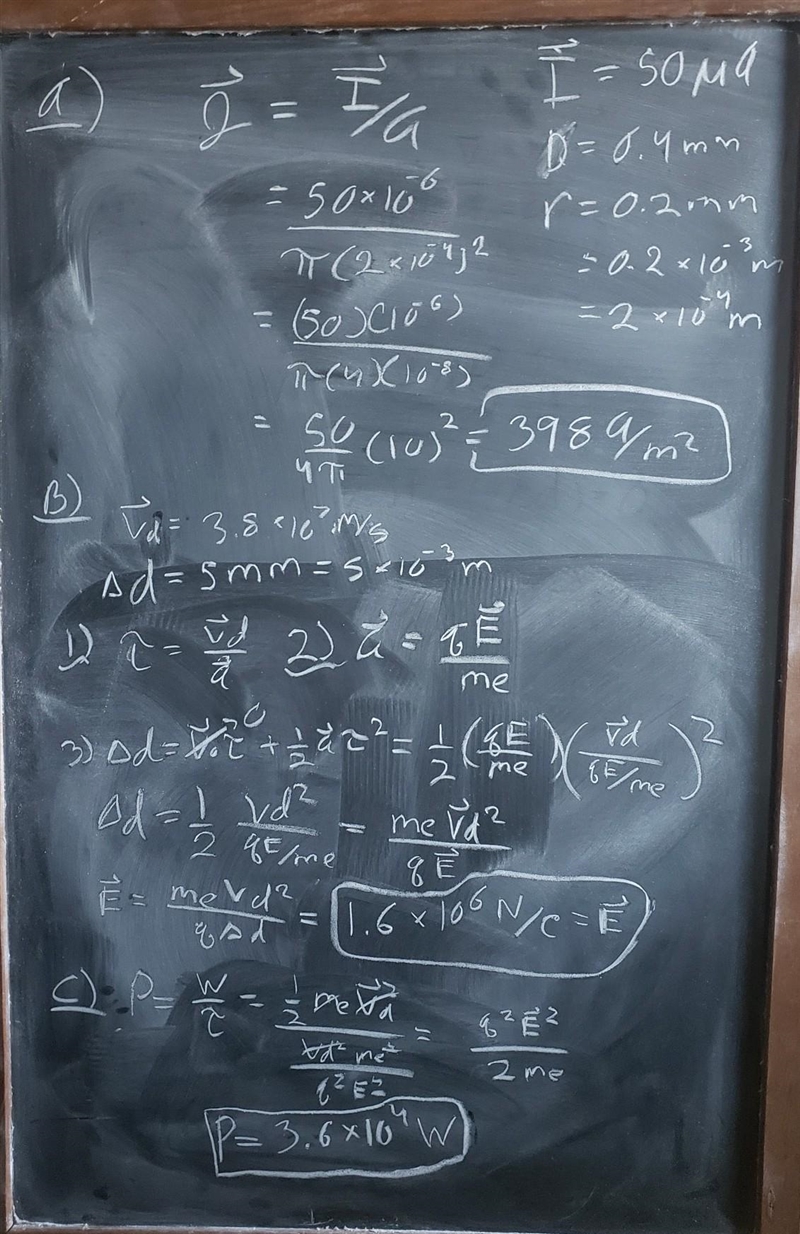 a) J⃗ = I⃗/a
I⃗ = 50 μa
D = 0.4 mm
r = 0.2 mm
= 0.2 × 10⁻³ m
= 2 × 10⁻⁴ m
= 50 × 10⁻⁶ / π(2 × 10⁻⁴)²
= (50)(10⁻⁶) / π(4)(10⁻⁸)
= 50/4π (10)² = 398 a/m²
B)
V⃗d = 3.8 × 10⁷ m/s
Δd = 5mm = 5 × 10⁻³ m
1) τ = V⃗d/a⃗ 2) a⃗ = qE⃗/me
3) Δd = V⃗₀τ⁰ + 1/2 a⃗τ² = 1/2 (qE/me)(V⃗d / qE/me)²
Δd = 1/2 Vd² / qE/me = meV⃗d² / qE⃗
E⃗ = meVd² / qΔd = 1.6 × 10⁶ N/C = E⃗
C) P = W/τ = 1/2 meV⃗d² / Vd² me² / q²E² = q²E⃗² / 2me
P = 3.6 × 10⁴ W